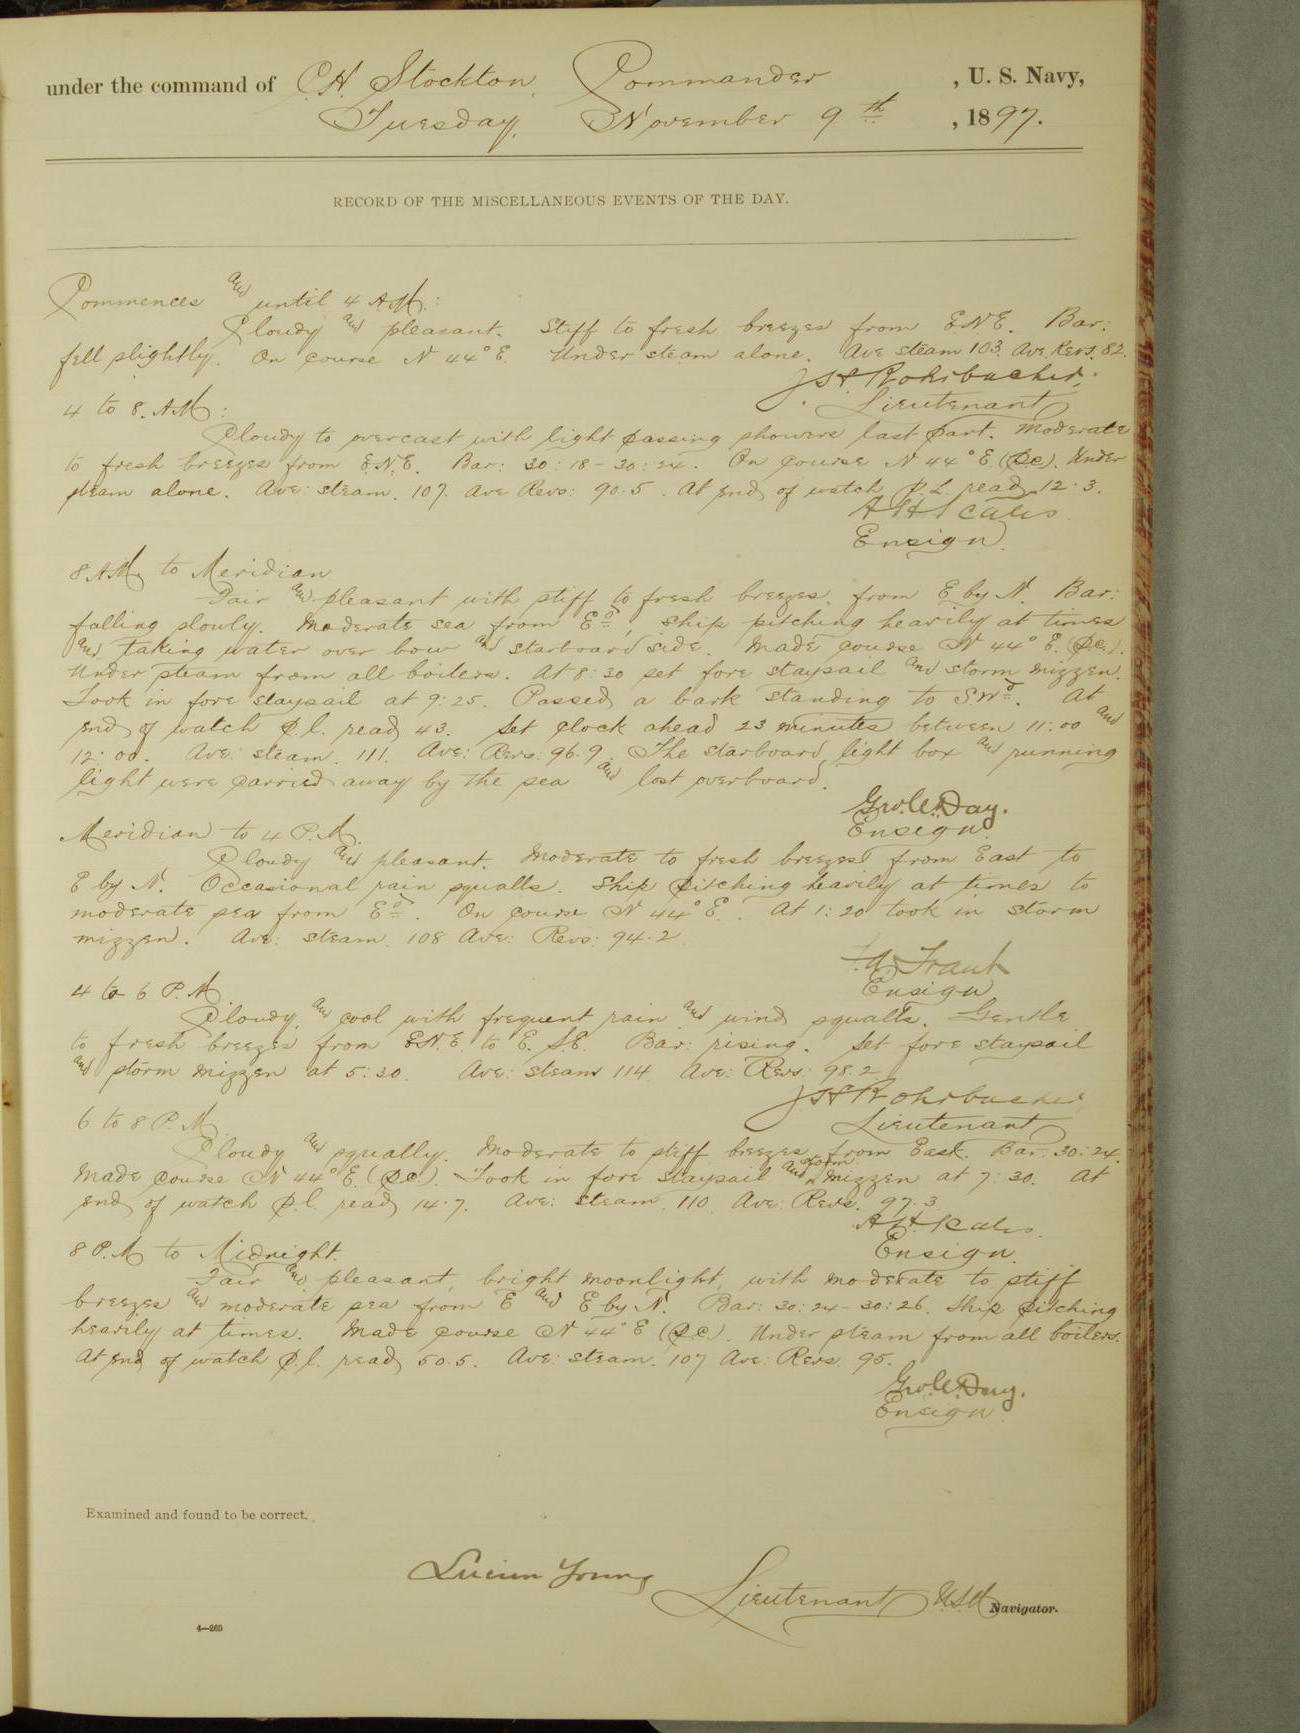 under the command of C.H. Stockton, Commander, U. S. Navy,
Tuesday, November 9th, 1897.
RECORD OF THE MISCELLANEOUS EVENTS OF THE DAY.
Commences and until 4 AM:
Cloudy and pleasant. Stiff to fresh breezes from E.N.E. Bar:
fell slightly. On course N 44° E. Under steam alone. Ave steam 103. Ave. Revs. 82.
J.H. Rohrbacher,
Lieutenant
4 to 8. AM:
Cloudy to overcast with light passing showers last part. Moderate
to fresh breezes from E.N.E. Bar: 30:18-30:24. On course N 44° E. (p.c.). Under
steam alone. Ave: steam. 107. Ave Revs: 90.5. At end of watch P.L. read 12.3.
A H Scales
Ensign.
8 AM to Meridian
Fair and pleasant with stiff to fresh breezes. from E by N. Bar:
falling slowly. Moderate sea from Ed, ship pitching heavily at times
and taking water over bow and starboard side. Made course N 44° E. (p.c.).
Under steam from all boilers. At 8:30 set fore staysail and storm mizzen.
Took in fore staysail at 9:25. Passed a bark standing to SWd. At
end of watch p.l. read 43. Set clock ahead 23 minutes between 11:00 and
12:00. Ave: steam. 111. Ave: Revs: 96.9. The starboard light box and running
light were carried away by the sea and lost overboard.
Geo. C. Day.
Ensign.
Meridian to 4 P.M.
Cloudy and pleasant. Moderate to fresh breezes from East to
E by N. Occasional rain squalls. Ship pitching heavily at times to
moderate sea from Ed. On course N 44° E. At 1:20 took in storm
mizzen. Ave: steam. 108 Ave: Revs: 94.2
Ensign
4 to 6 P.M.
Cloudy, and cool with frequent rain and wind squalls. Gentle
to fresh breezes from E.N.E. to E. S.E. Bar: rising. Set fore staysail
and storm mizzen at 5:30. Ave: steam 114. Ave: Revs: 98.2
J.H. Rohrbacher,
Lieutenant
6 to 8 P.M.
Cloudy and squally. Moderate to stiff breezes from East. Bar: 30:24.
Made course N 44° E. (p.c.). Took in fore staysail and storm mizzen at 7:30. At
end of watch p.l. read 14.7. Ave: steam. 110. Ave: Revs. 97.3
A H Scales.
Ensign.
8 P.M to Midnight.
Fair and pleasant, bright moonlight, with moderate to stiff
breezes and moderate sea from E and E by N. Bar: 30:24-30:26. Ship pitching
heavily at times. Made course N 44° E (p.c.). Under steam from all boilers.
At end of watch p.l. read 50.5. Ave: steam. 107 Ave: Revs. 95.
Geo. C. Day.
Ensign
Examined and found to be correct.
Lucien Young Lieutenant U.S.N. Navigator.
4—265